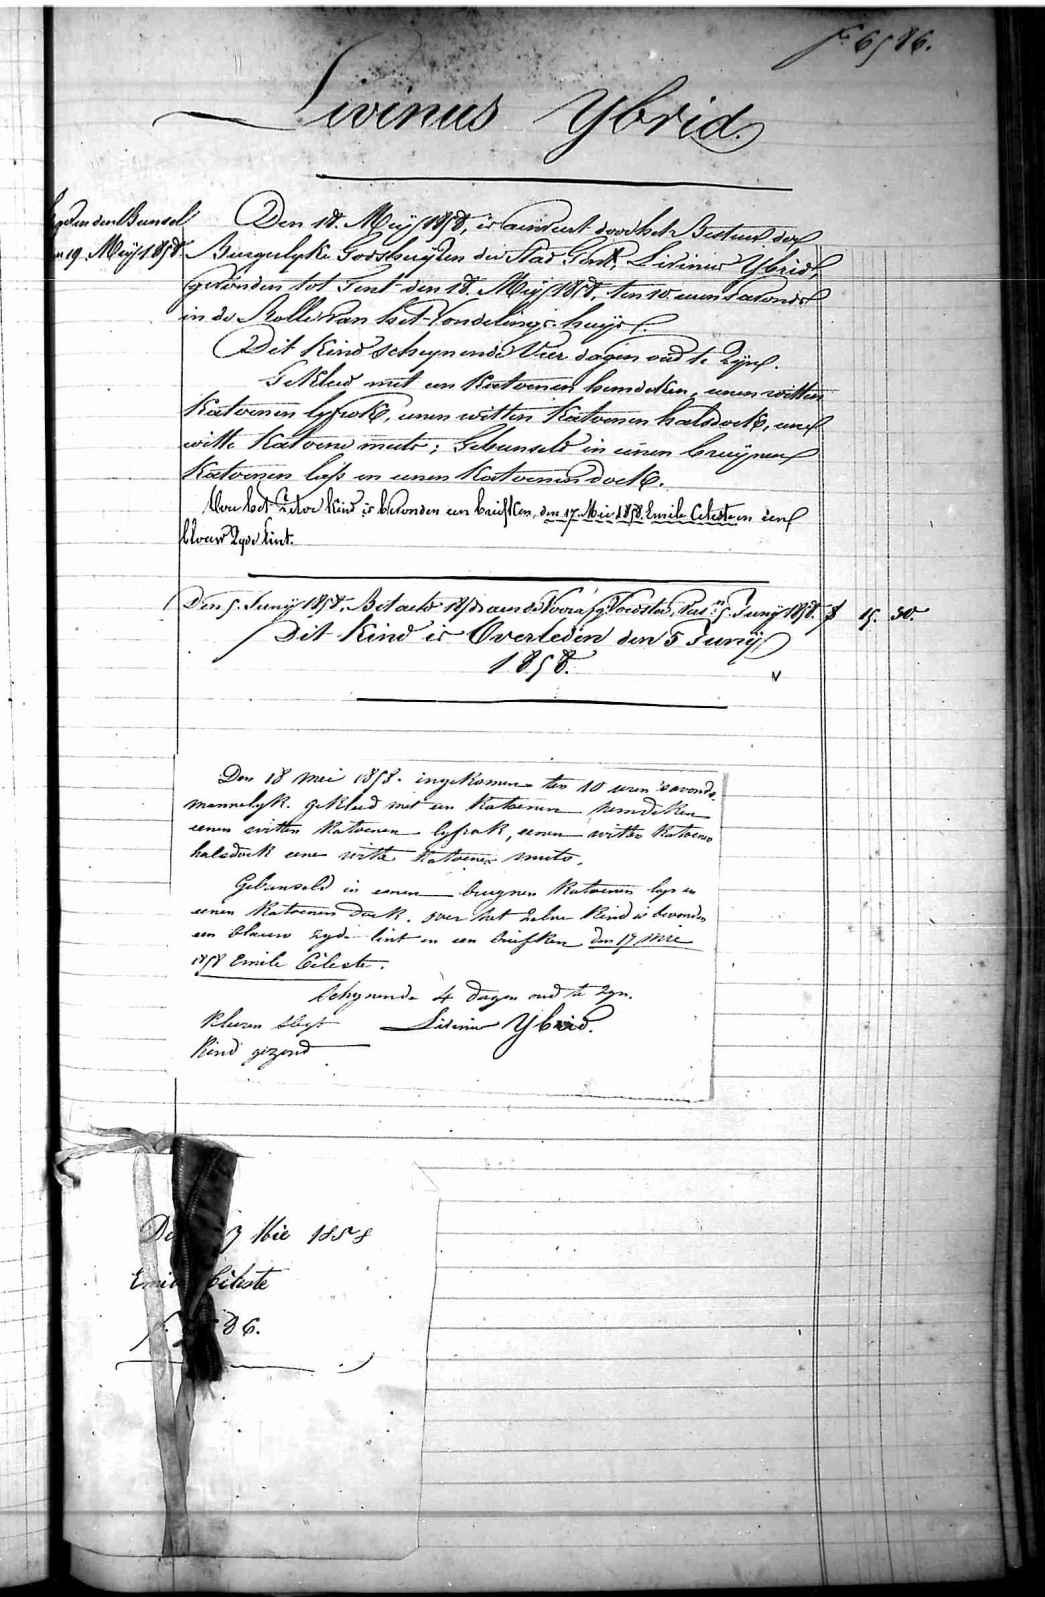 f. 6586.
Livinus Ybrid.
den Bunsel
19. Meÿ 1858
Den 18. Meÿ 1858, is aenveert door het Bestuer der
Burgerlyke Godshuyzen der Stad Gent, Livinus Ybrid,
gevonden tot Gent den 18. Meÿ 1858, ten 10. uren savonds
in de Rolle van het Vondelings-huys.
Dit Kind schynende Vier dagen oud te Zyn.
Gekleed met een Katoenen hemdeken, eenen witten
Katoenen lyfrok, eenen witten Katoenen halsdoek, eene
witte Katoene muts; Gebunseld in eenen bruynen
Katoenen lap en eenen Katoenen doek.
Over het Zelve kind is bevonden een briefken, den 17 Mei 1858. Emile Celeste en een
blauw Zyde lint.
Den 5. Junÿ 1858, Betaeld aen de Voedster, 5. Junÿ 1858. f 15. 30.
Dit Kind is Overleden den 5 Junÿ
1858.
Den 18 mei 1858. ingekomen ten 10 uren 's avonds
mannelyk. gekleed met een katoenen hemdeken
eenen witten katoenen lyfrok, eenen witten katoenen
halsdoek eene witte katoenen muts.
Gebunseld in eenen bruynen katoenen lap en
eenen katoenen doek. over het zelve kind is bevonden
een blauw zyde lint en een briefken den 17 mei
1858 Emile Céleste.
Schynende 4 dagen oud te zyn.
kleeren slegt Livinus Ybrid.
kind gezond
De 7 Mie 1858
Emi Céleste
f. 86.